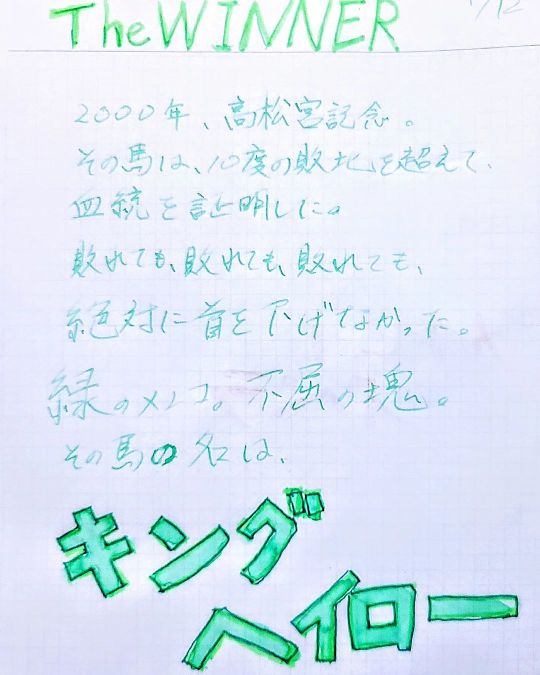 The WINNER
2000年、高松宮記念。
その馬は、10度の敗北を超えて、
血統を証明した。
敗れても、敗れても、敗れても、
絶対に首を下げなかった。
緑のメンコ。不屈の塊。
その馬の名は、
キング
ヘイロー